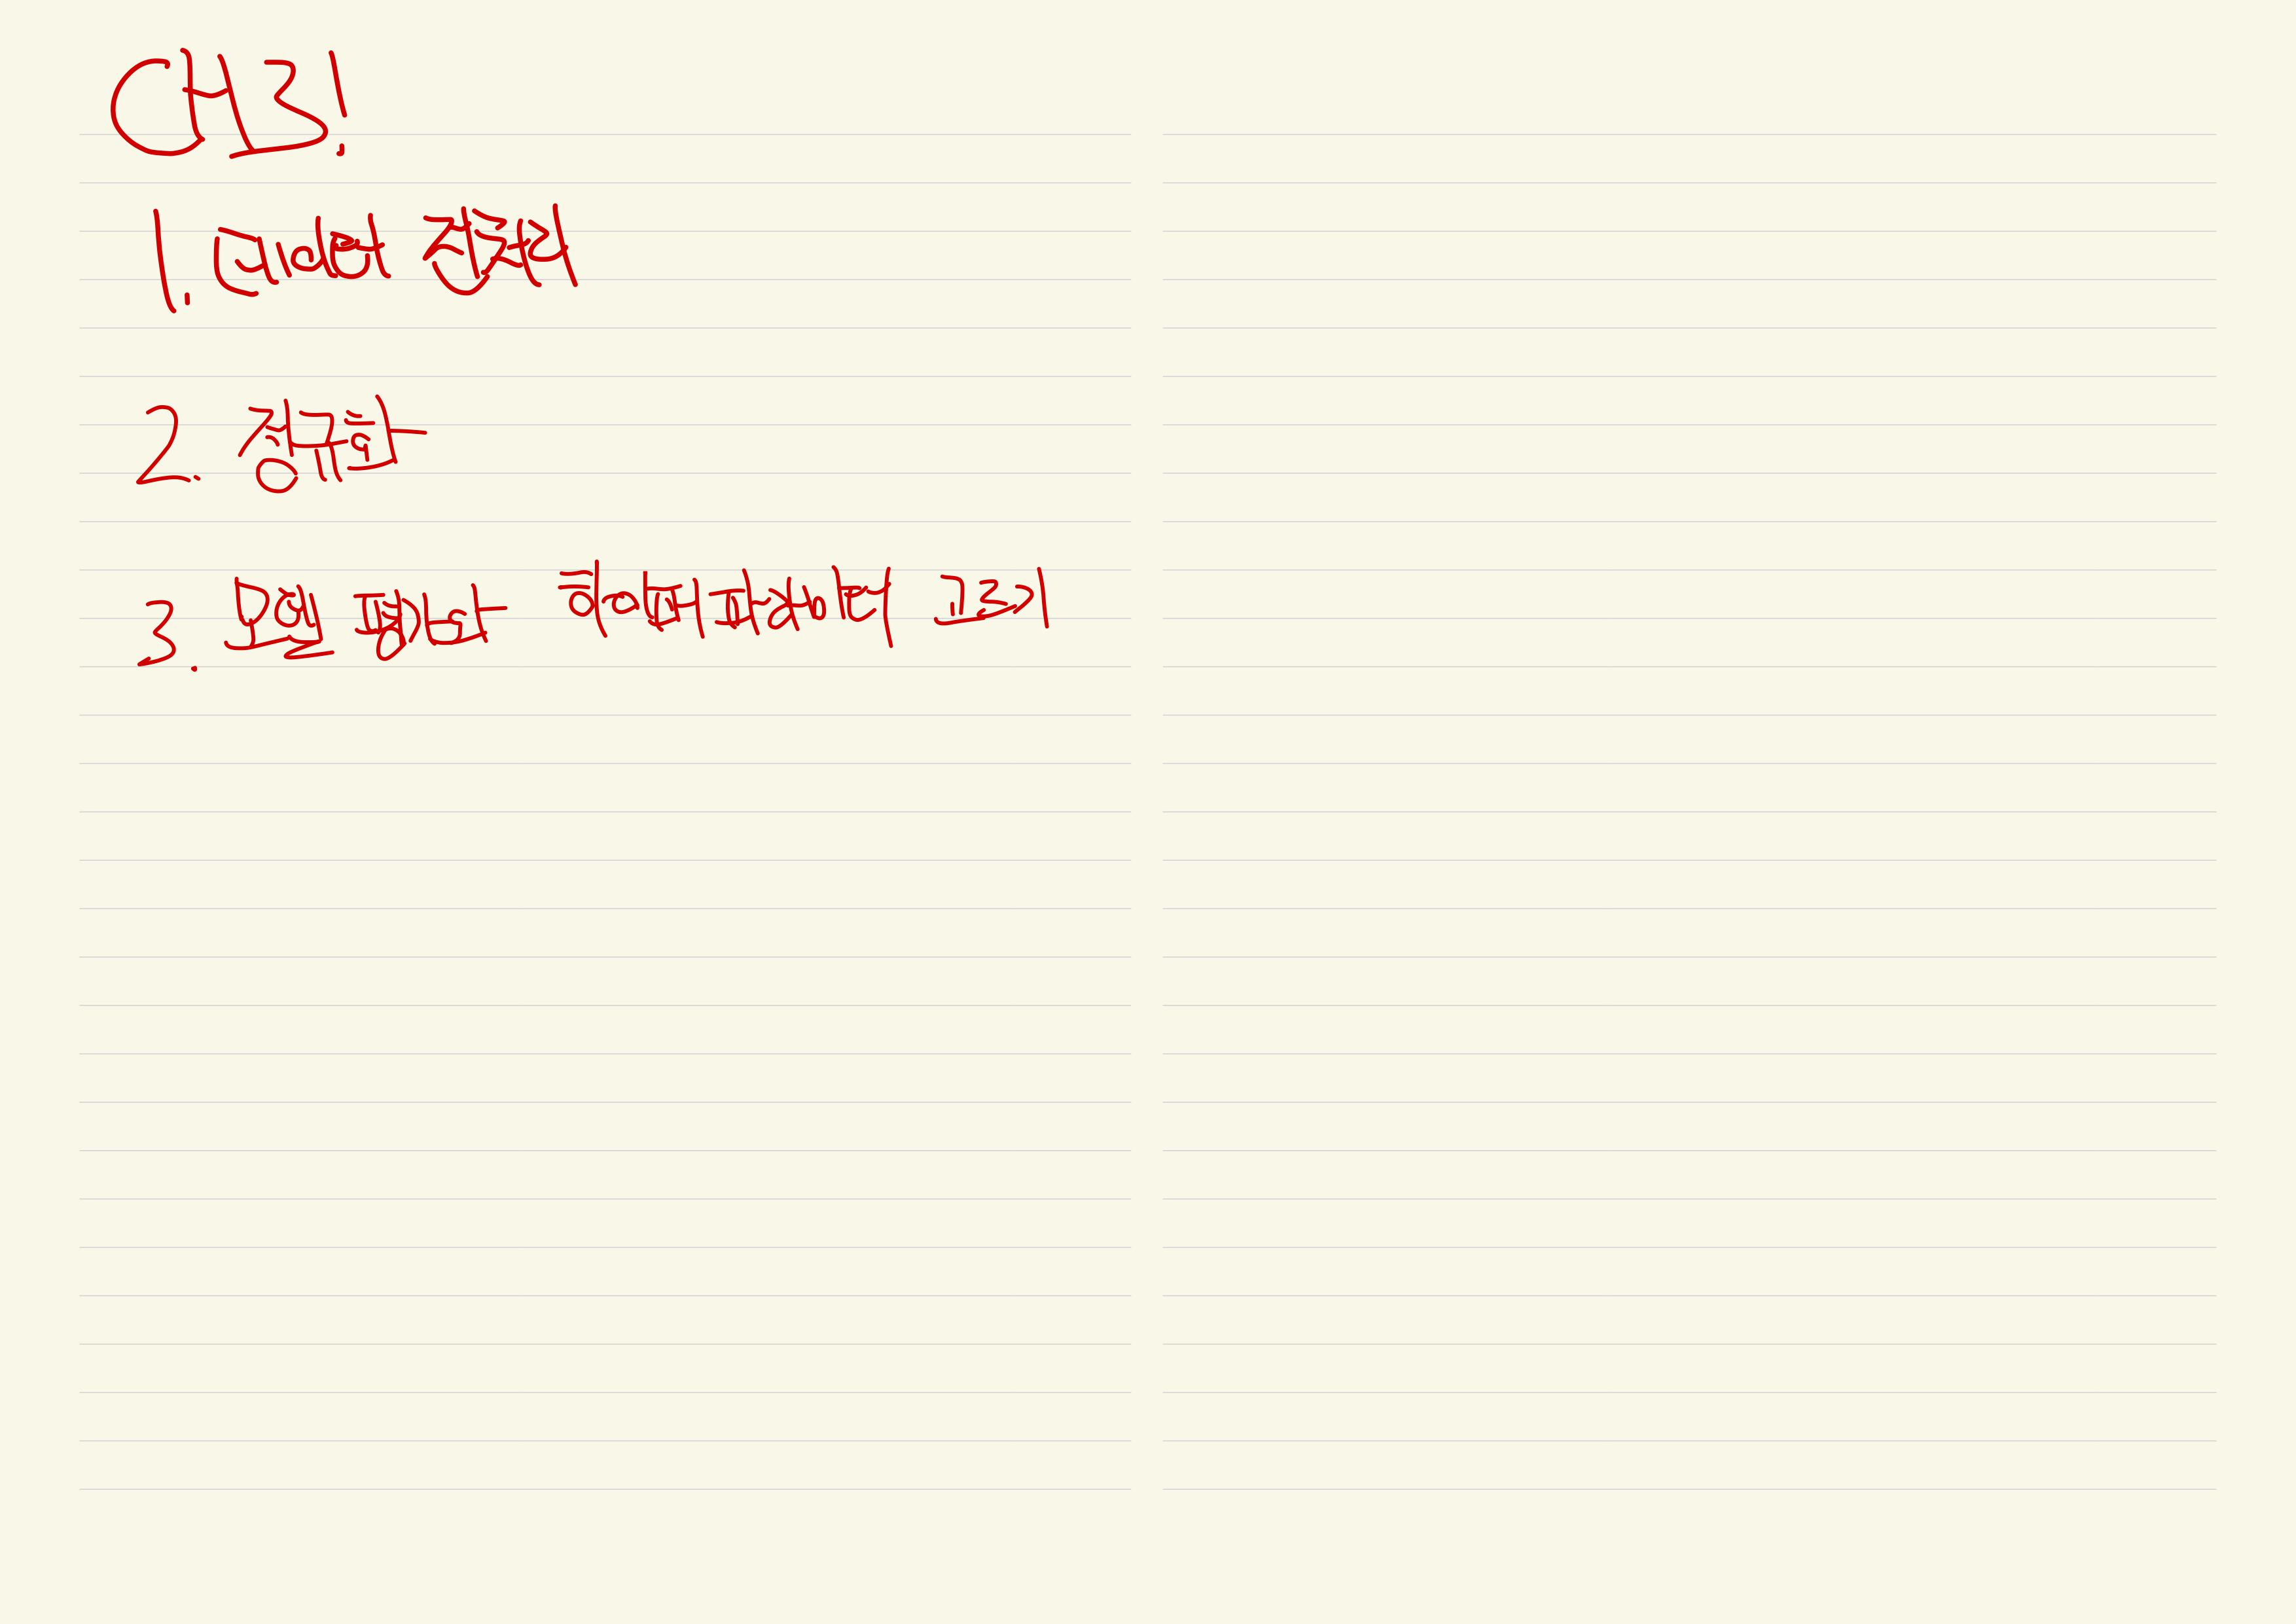 CH3!
1. 데이터 전처리
2. 정규화
3. 모델 평가와 하이퍼파라미터 고르기